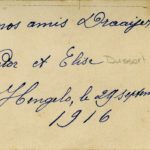 nos amis Draaijer
et Elise Dussart
Hengelo, le 29 septem
1916